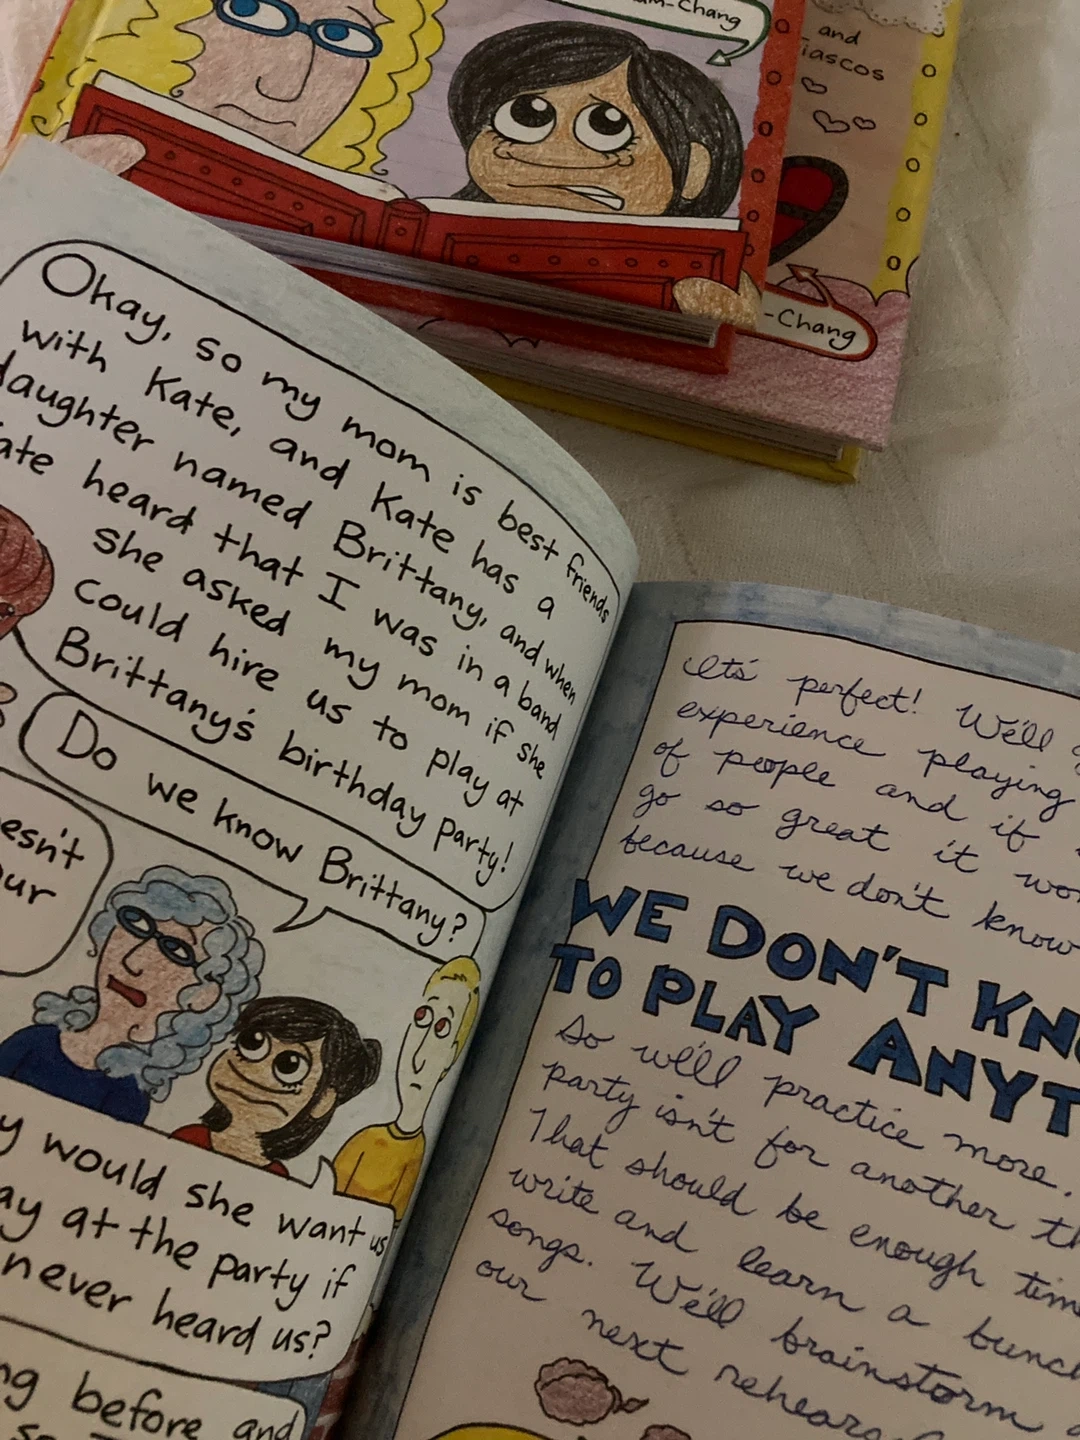 -Chang
and
iascos
-Chang
Okay, so my mom is best friends
with Kate, and Kate has a
daughter named Brittany, and when
ate heard that I was in a band
she asked my mom if she
could hire us to play at
Brittany's birthday party!
Do we know Brittany?
esn't
our
y would she want us
ay at the party if
never heard us?
ng before and
It's perfect! We'll
experience playing
of people and if
go so great it won
because we don't know
WE DON'T KN
TO PLAY ANYT
So we'll practice more.
party isn't for another th
That should be enough time
write and learn a bunch
songs. We'll brainstorm
our next rehears